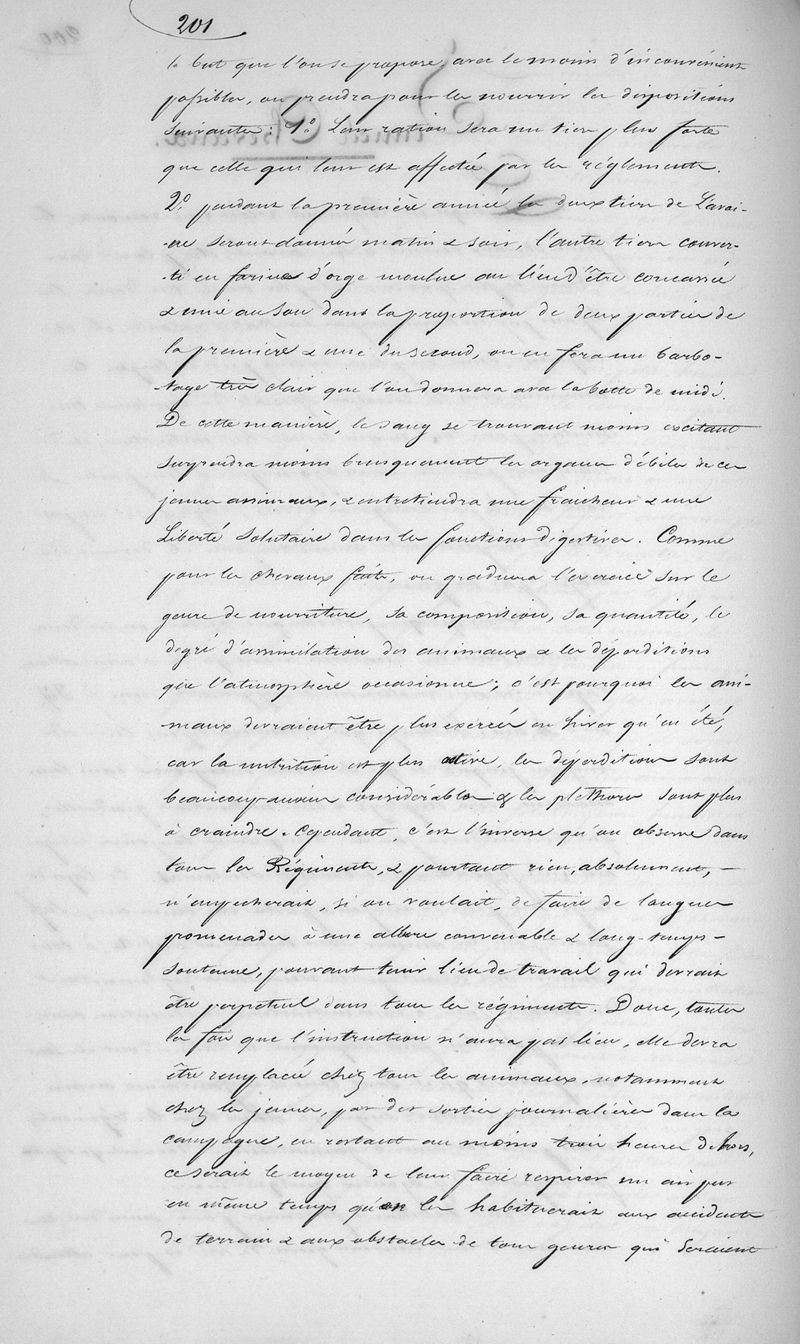 201
le but que l'on se propose, avec le moins d'inconvénients
possibles, on prendra pour les nourrir les dispositions
suivantes: 1º. Leur ration sera un tiers plus forte
que celle qui leur est affectée par les règlements.
2º. pendant la première année les deux tiers de l'avoi-
-ne seront donnés matin & soir, l'autre tiers conver-
-ti en farine d'orge moulue au lieu d'être concassée
& unie au son dans la proportion de deux parties de
la première & une du second, on en fera un barbo-
-tage très clair que l'on donnera avec la botte de midi.
De cette manière, le sang se trouvant moins excitant
surprendra moins brusquement les organes débiles de ces
jeunes animaux, & entretiendra une fraicheur & une
Liberté salutaire dans les fonctions digestives. Comme
pour les chevaux faits, on graduera l'exercice sur le
genre de nourriture, sa composition, sa quantité, le
degré d'assimilation des animaux & les déperditions
que l'atmosphère occasionne; c'est pourquoi les ani-
-maux devraient être plus exercés en hiver qu'en été,
car la nutrition est plus active, les déperditions sont
beaucoup moins considérables & les plethores sont plus
à craindre. Cependant, c'est l'inverse qu'on observe dans
tous les Régiments, & pourtant rien, absolument, -
n'empecherait, si on voulait, de faire de longues
promenades à une allure convenable & long-temps -
soutenue, pouvant tenir lieu de travail qui devrait
être perpetuel dans tous les régiments. Donc, toutes
les fois que l'instruction n'aura pas lieu, elle devra
être remplacée chez tous les animaux, notamment
chez les jeunes, par des sorties journalières dans la
campagne, en restant au moins trois heures dehors,
ce serait le moyen de leur faire respirer un air pur
en même temps qu'on les habituerait aux accidents
de terrain & aux obstacles de tous genres qui seraient